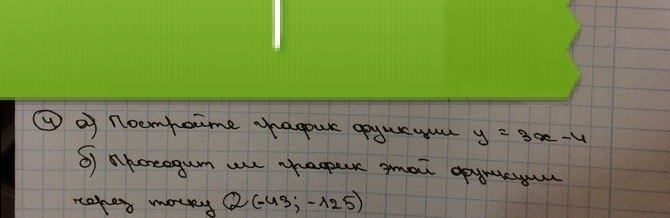 ④ а) Постройте график функции y = 3x - 4
б) Проходит ли график этой функции
через точку Q (-43; -125)